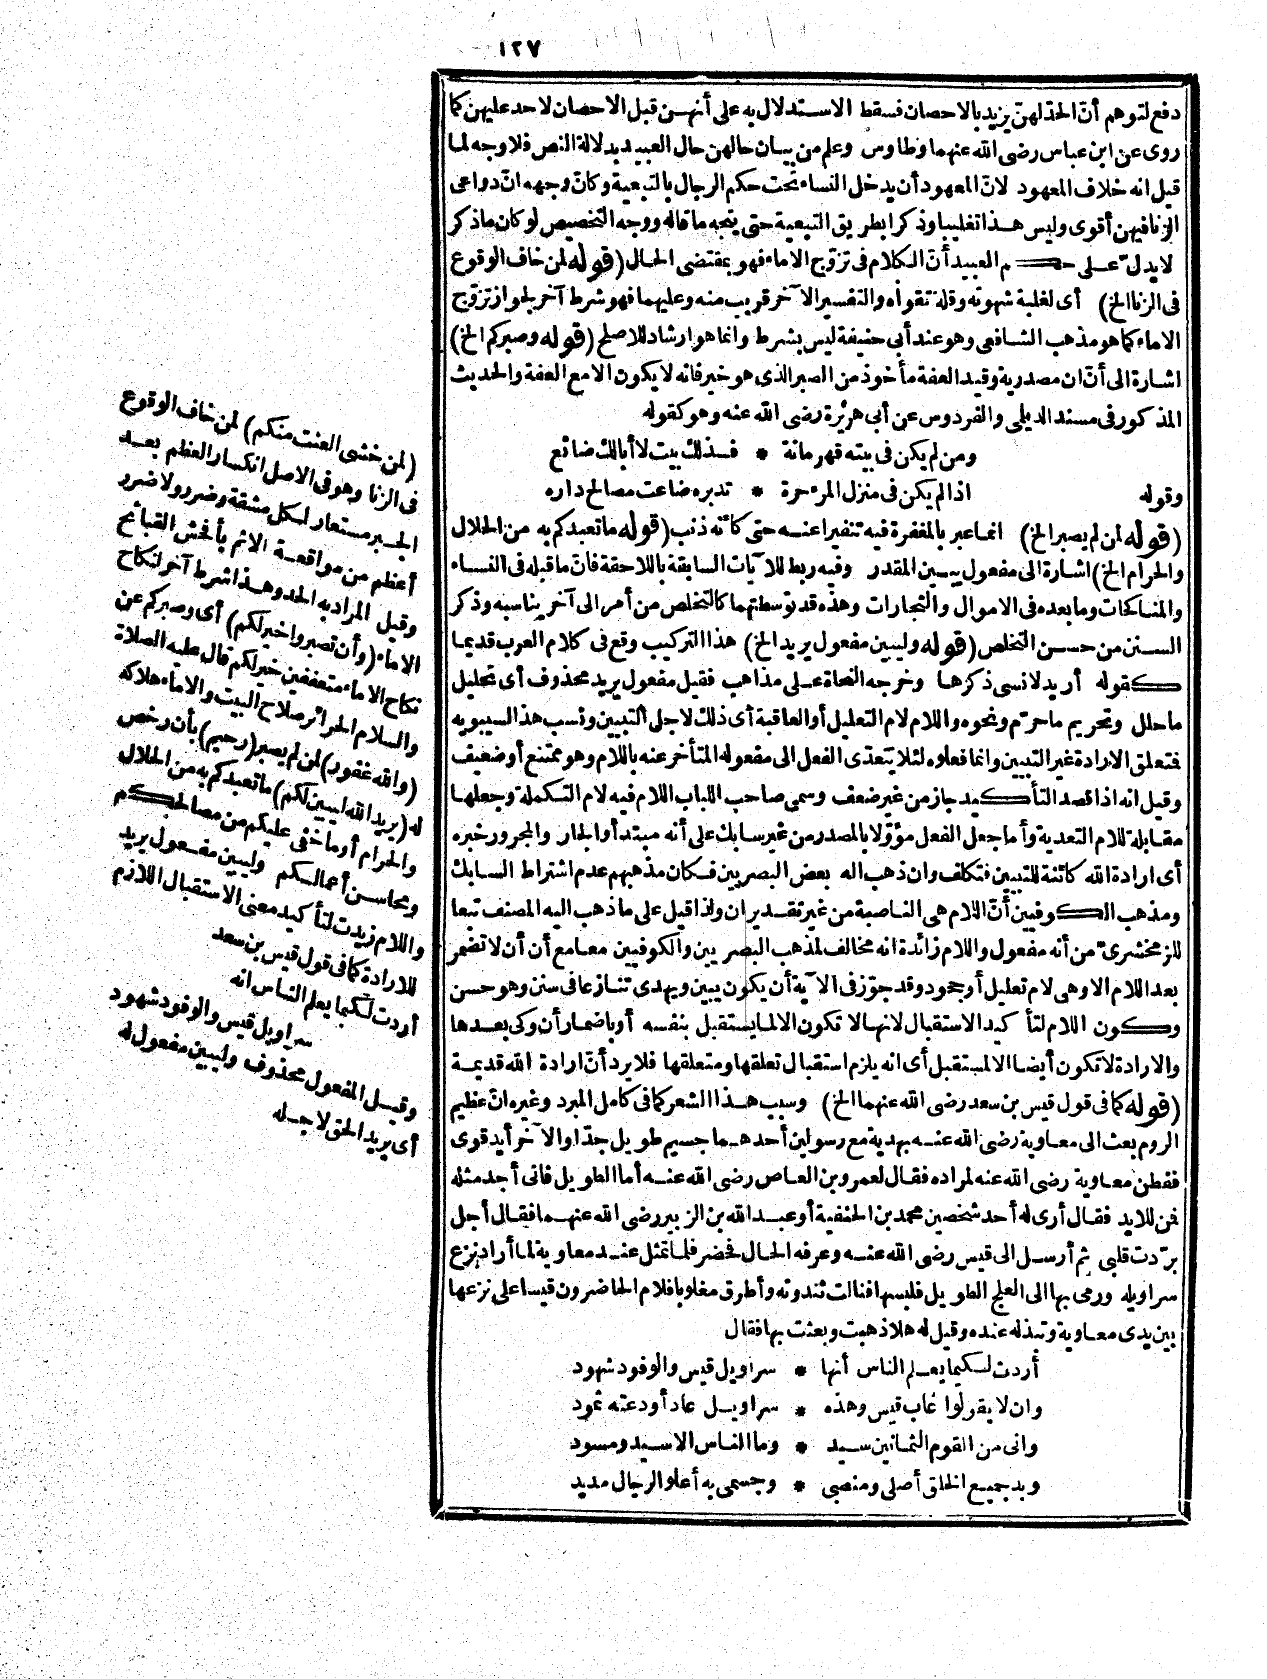 ١٢٧
دفع لتوهم أنّ الحدّ لهنّ يزيد بالاحصان فسقط الاستدلال به على أنهن قبل الاحصان لا حد عليهن كما
روى عن ابن عباس رضى الله عنهما وطاوس وعلم من بيان حالهن حال العبيد بدلالة النص فلا وجه لما
قيل انه خلاف المعهود لانّ المعهود أن يدخل النساء تحت حكم الرجال بالتبعية وكانّ وجهه انّ دواعى
الزنا فيهن أقوى وليس هذا تغليبا وذكرا بطريق التبعية حتى يتجه ما قاله ووجه التخصيص لو كان ما ذكر
لا يدلّ على حكم العبيد أنّ الكلام فى تزوّج الاماء فهو بمقتضى الحال (قوله لمن خاف الوقوع
فى الزنا الخ) أى لغلبة شهوته وقلة تقواه والتفسير الآخر قريب منه وعليهما فهو شرط آخر لجواز تزوّج
الاماء كما هو مذهب الشافعى وهو عند أبى حنيفة ليس بشرط وانما هو ارشاد للاصلح (قوله وصبركم الخ)
اشارة الى أنّ ان مصدرية وقيد العفة مأخوذ من الصبر الذى هو خير فانه لا يكون الا مع العفة والحديث
المذكور فى مسند الديلمى والفردوس عن أبى هريرة رضى الله عنه وهو كقوله
ومن لم يكن فى بيته قهرمانة * فذلك بيت لا أبالك ضائع
وقوله اذا لم يكن فى منزل المرء حرة * تدبره ضاعت مصالح داره
(قوله لمن لم يصبر الخ) انما عبر بالمغفرة فيه تنفيرا عنه حتى كأنه ذنب (قوله ما تعبدكم به من الحلال
والحرام الخ) اشارة الى مفعول يبين المقدر وفيه ربط للآيات السابقة باللاحقة فانّ ما قبله فى النساء
والمناكحات وما بعده فى الاموال والتجارات وهذه قد توسطتهما كالتخلص من أمر الى آخر يناسبه وذكر
السنن من حسن التخلص (قوله وليبين مفعول يريد الخ) هذا التركيب وقع فى كلام العرب قديما
كقوله أريد لانسى ذكرها وخرجه النحاة على مذاهب فقيل مفعول يريد محذوف أى تحليل
ما حلل وتحريم ما حرّم ونحوه واللام لام التعليل أو العاقبة أى ذلك لاجل التبيين ونسب هذا لسيبويه
فتعلق الارادة غير التبيين وانما فعلوه لئلا يتعدّى الفعل الى مفعوله المتأخر عنه باللام وهو ممتنع أو ضعيف
وقيل انه اذا قصد التأكيد جاز من غير ضعف وسمى صاحب اللباب اللام فيه لام التكملة وجعلها
مقابلة للام التعدية وأما جعل الفعل مؤوّلا بالمصدر من غير سابك على أنه مبتدأ والجار والمجرور خبره
أى ارادة الله كائنة للتبيين فتكلف وان ذهب اليه بعض البصريين فكان مذهبهم عدم اشتراط السابك
ومذهب الكوفيين أنّ اللام هى الناصبة من غير تقدير ان ولذا قيل على ما ذهب اليه المصنف تبعا
للزمخشرىّ من أنه مفعول واللام زائدة انه مخالف لمذهب البصريين والكوفيين معا مع أن أن لا تضمر
بعد اللام الا وهى لام تعليل أو جحود وقد جوّز فى الآية أن يكون يبين ويهدى تنازعا فى سنن وهو حسن
وكون اللام لتأكيد الاستقبال لانها لا تكون الا لما يستقبل بنفسه أو باضمار أن وكى بعدها
والارادة لا تكون أيضا الا لمستقبل أى انه يلزم استقبال تعلقها ومتعلقها فلا يرد أنّ ارادة الله قديمة
(قوله كما فى قول قيس بن سعد رضى الله عنهما الخ) وسبب هذا الشعر كما فى كامل المبرد وغيره انّ عظيم
الروم بعث الى معاوية رضى الله عنه بهدية مع رسولين أحدهما جسيم طويل جدّا والآخر أيد قوى
ففطن معاوية رضى الله عنه لمراده فقال لعمرو بن العاص رضى الله عنه أما الطويل فانى أجد مثله
فمن للايد فقال أرى له أحد شخصين محمد بن الحنفية أو عبد الله بن الزبير رضى الله عنهما فقال أجل
برّدت قلبى ثم أرسل الى قيس رضى الله عنه وعرفه الحال فحضر فلما تمثل عند معاوية لما أراد نزع
سراويله ورمى بها الى العلج الطويل فلبسها فنالت ثندوته وأطرق مغلوبا فلام الحاضرون قيسا على نزعها
بين يدى معاوية وتبذله عنده وقيل له هلا ذهبت وبعثت بها فقال
أردت لكيما يعلم الناس أنها * سراويل قيس والوفود شهود
وان لا يقولوا غاب قيس وهذه * سراويل عاد أودعته ثمود
وانى من القوم الثمانين سيد * وما الناس الا سيد ومسود
وبد جميع الخلق أصلى ومنصبى * وجسمى به أعلو الرجال مديد
(لمن خشى العنت منكم) لمن خاف الوقوع
فى الزنا وهو فى الاصل انكسار العظم بعد
الجبر مستعار لكل مشقة وضرر ولا ضرر
أعظم من مواقعة الاثم بأفحش القبائح
وقيل المراد به الحد وهذا شرط آخر لنكاح
الاماء (وأن تصبروا خير لكم) أى وصبركم عن
نكاح الاماء متعففين خير لكم قال عليه الصلاة
والسلام الحرائر صلاح البيت والاماء هلاكه
(والله غفور) لمن لم يصبر (رحيم) بأن رخص
له (يريد الله ليبين لكم) ما تعبدكم به من الحلال
والحرام أو ما خفى عليكم من مصالحكم
ومحاسن أعمالكم وليبين مفعول يريد
واللام زيدت لتأكيد معنى الاستقبال اللازم
للارادة كما فى قول قيس بن سعد
أردت لكيما يعلم الناس انه
سراويل قيس والوفود شهود
وقيل المفعول محذوف وليبين مفعول له
أى يريد الحق لاجله